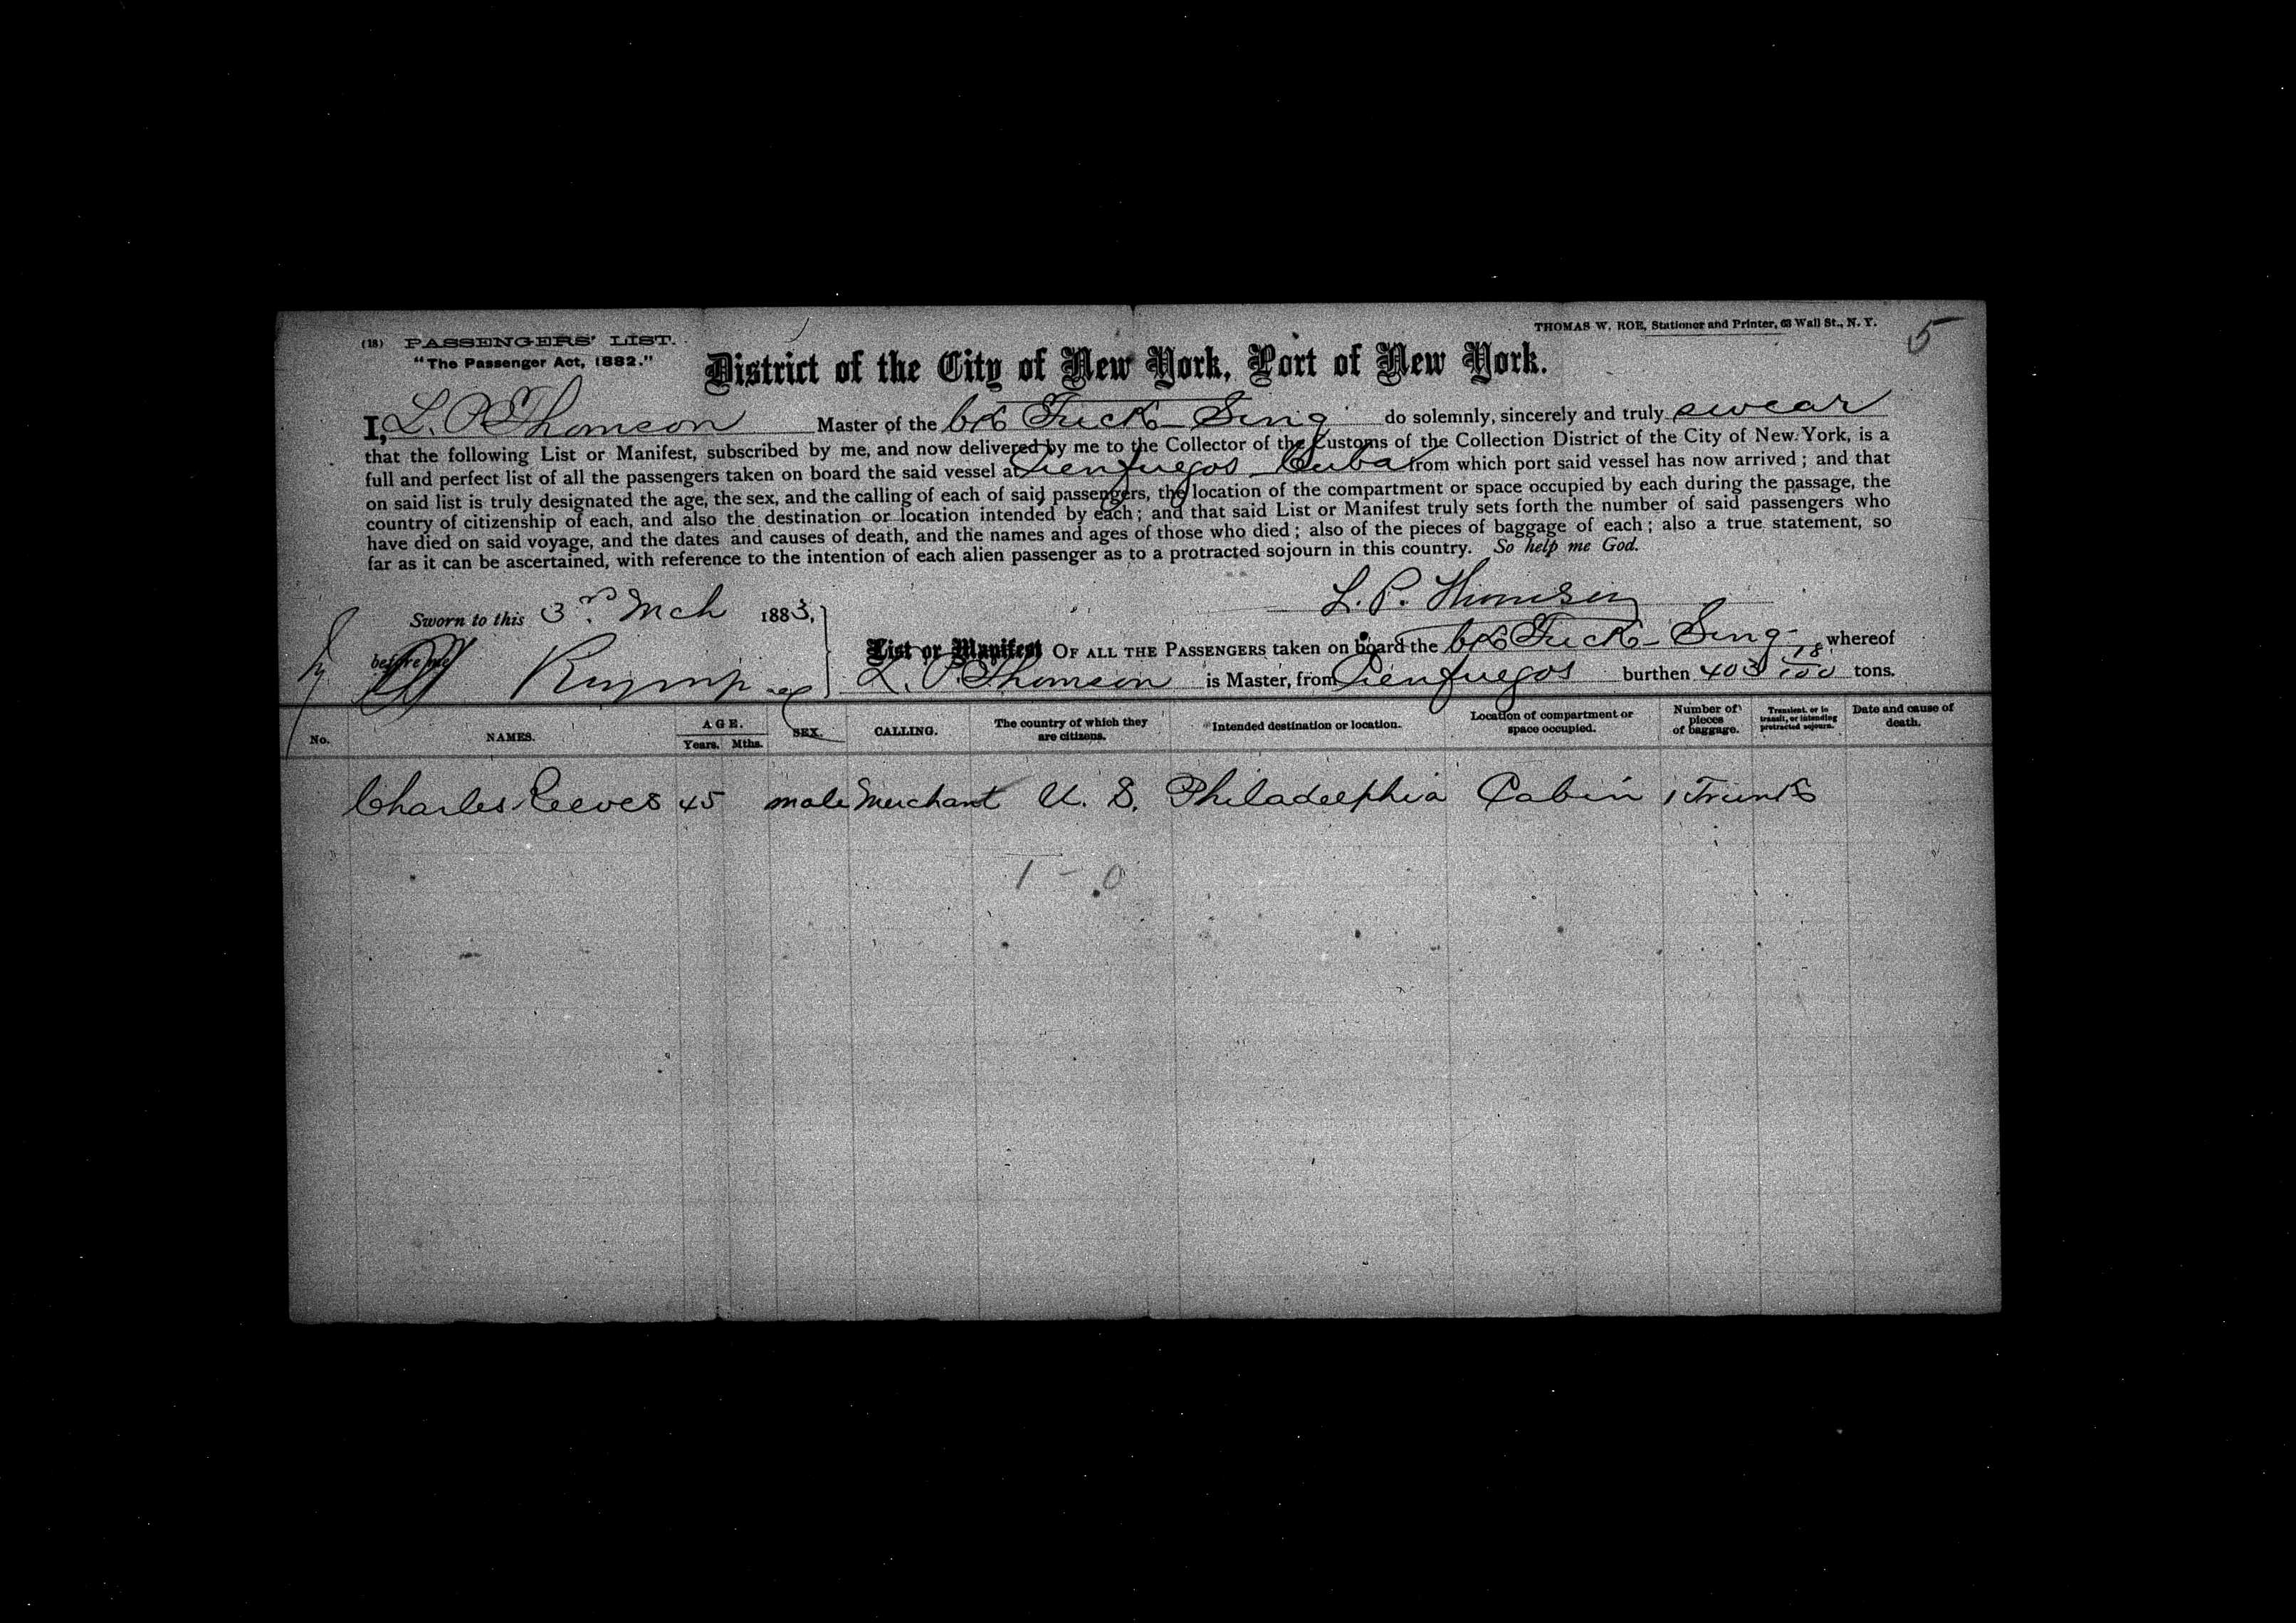 (18) PASSENGERS' LIST.
"The Passenger Act, 1882."
THOMAS W. ROE, Stationer and Printer, 63 Wall St., N. Y.
5
District of the City of New York, Port of New York.
I, L. P. Thomson Master of the bk Tuck Sing do solemnly, sincerely and truly swear
that the following List or Manifest, subscribed by me, and now delivered by me to the Collector of the Customs of the Collection District of the City of New York, is a
full and perfect list of all the passengers taken on board the said vessel at Cienfuegos Cuba from which port said vessel has now arrived; and that
on said list is truly designated the age, the sex, and the calling of each of said passengers, the location of the compartment or space occupied by each during the passage, the
country of citizenship of each, and also the destination or location intended by each; and that said List or Manifest truly sets forth the number of said passengers who
have died on said voyage, and the dates and causes of death, and the names and ages of those who died; also of the pieces of baggage of each; also a true statement, so
far as it can be ascertained, with reference to the intention of each alien passenger as to a protracted sojourn in this country. So help me God.
L. P. Thomson
Sworn to this 3rd Mch 1883,
before me
List or Manifest OF ALL THE PASSENGERS taken on board the bk Tuck Sing whereof
L. P. Thomson is Master, from Cienfuegos burthen 403 18/100 tons.
No. NAMES. AGE. Years. Mths. SEX. CALLING. The country of which they are citizens. Intended destination or location. Location of compartment or space occupied. Number of pieces of baggage. Transient, or in transit, or intending protracted sojourn. Date and cause of death.
Charles Reeves 45 male Merchant U. S. Philadelphia Cabin 1 Trunk
1 - 0